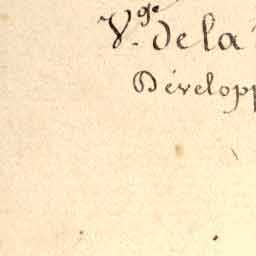 V.ge de la
Dévelop